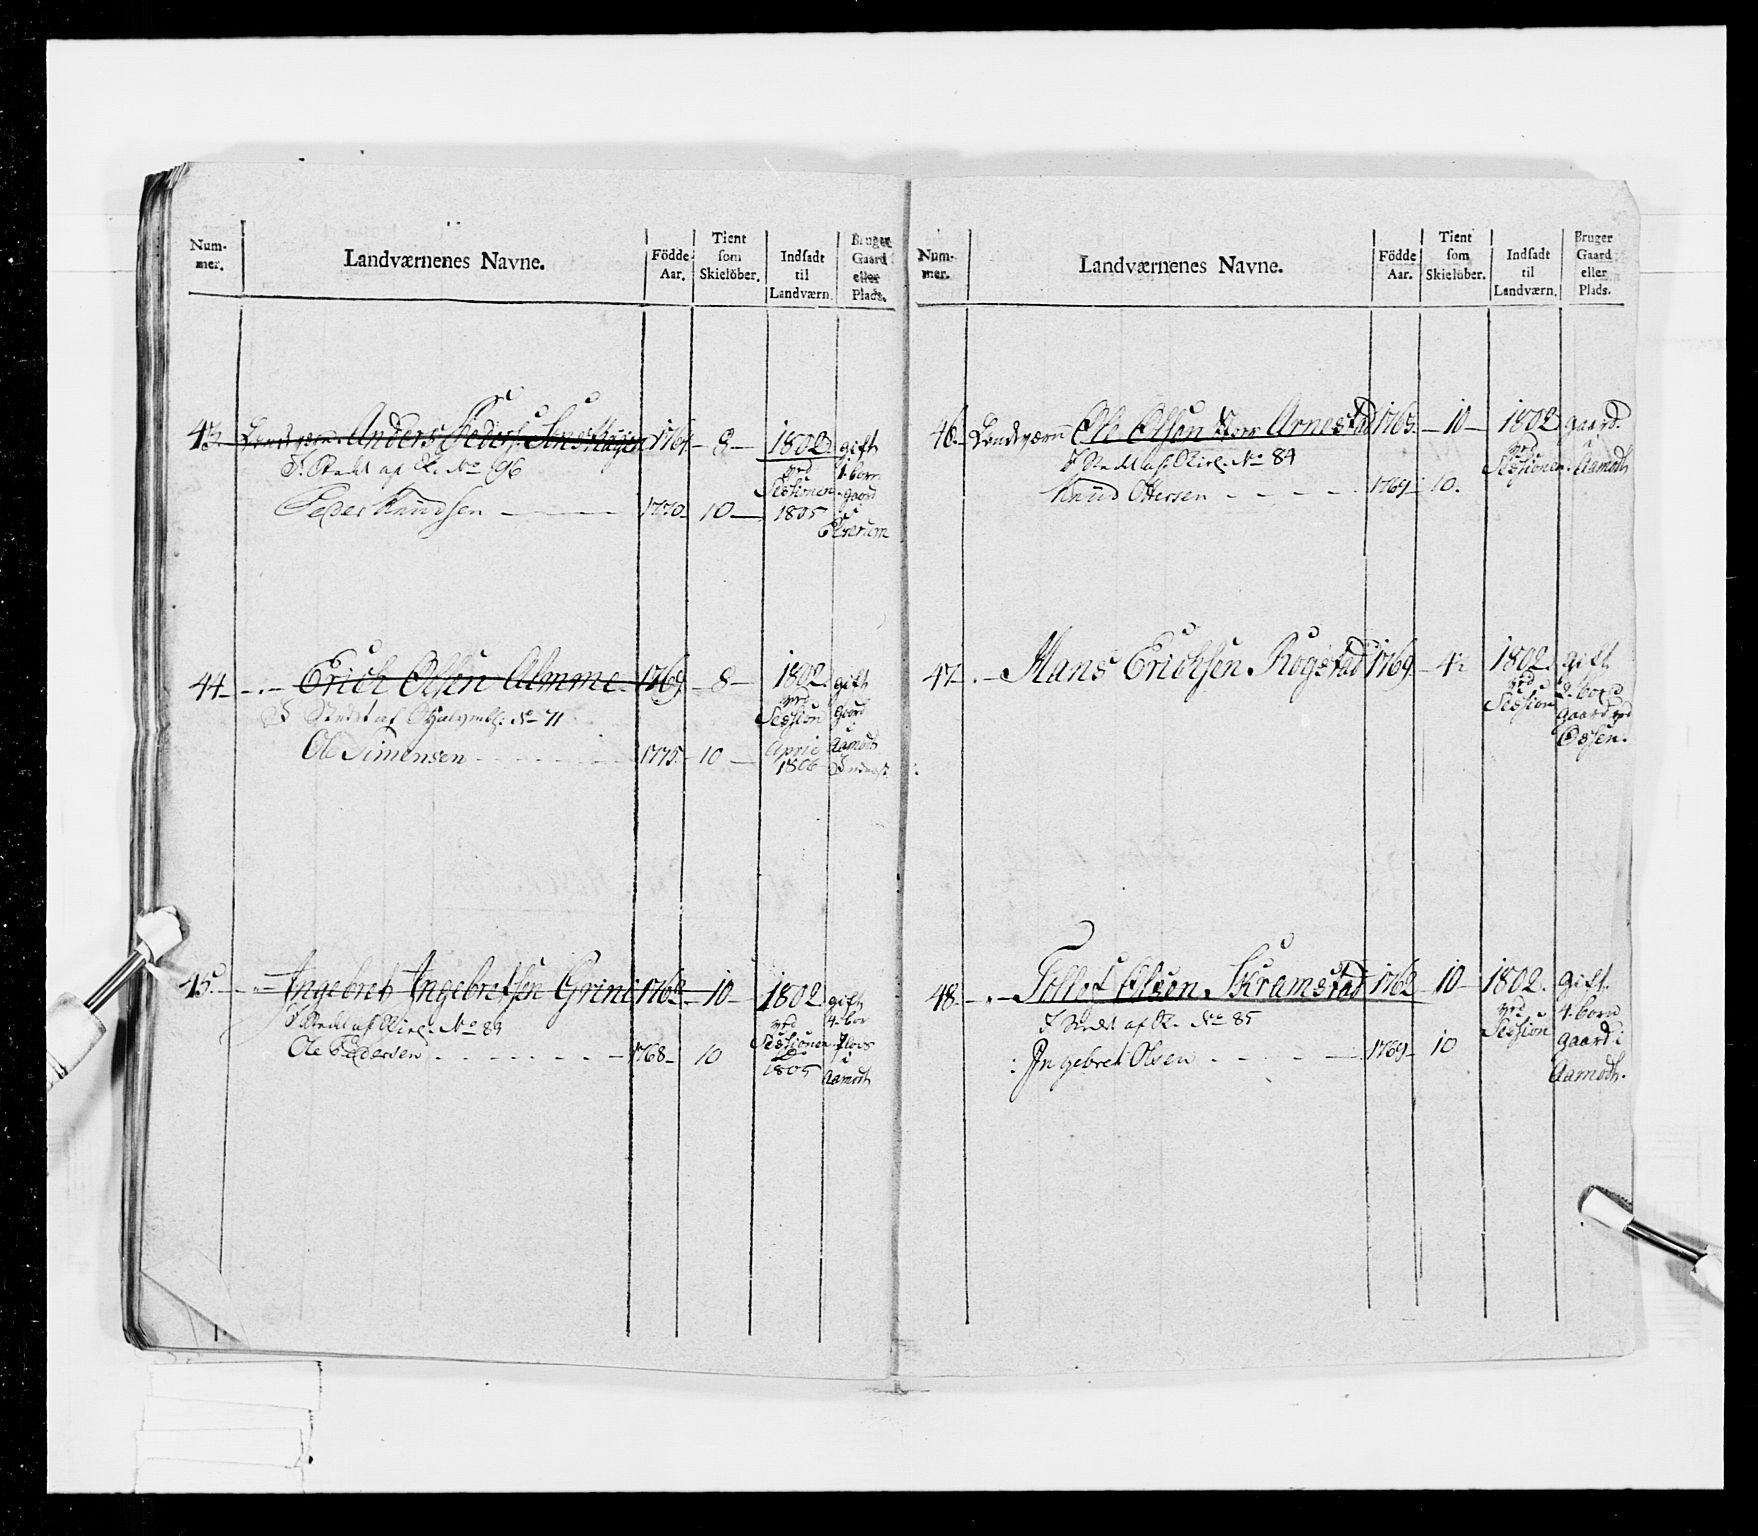 Num-
mer.
Landværnenes Navne.
Födde
Aar.
Tient
som
Skielöber.
Indsadt
til
Landværn.
Bruger
Gaard
eller
Plads.
43. Landværn Anders Peders. 1764 - 8 - 1802. gift
I Stedt af No 96
ved
Sessionen
1. born
gaard
Peder Knudsen 1770 - 10 - 1805
i
Elverum
44 - Erich Olsen Almme 1769 - 8 - 1802. gift
I Stedt af No 71
ved
Session
Gaard
Ole Simensen 1775. 10 - April Aamodt
1806
45. - Ingebret Ingebretsen Grine 1762 - 10 - 1802. gift
I Stedt af No 83
ved
Sessionen
4. bor
Plads
Ole Pedersen 1768 - 10
i
1805
Aamodt
Num-
mer.
Landværnenes Navne.
Födde
Aar.
Tient
som
Skielöber.
Indsadt
til
Landværn.
Bruger
Gaard
eller
Plads.
46. - Landværn Ole Olsen Arnestad 1765. - 10 - 1802 gaard.
I Stedt af No 84
ved
Sessionen
i
Aamodt
Knud Ottersen 1769 10.
47. - Hans Erichsen Rogstad 1769 - 4 1802. gift
ved
Session
2. born
Gaard ved
Ossen.
48. - Tollof Olsen Skramstad 1762 10 - 1802. gift.
I Stedt af No 85
ved
Session
1. born
gaard i
Ingebret Olsen 1769 - 10
Aamodt.